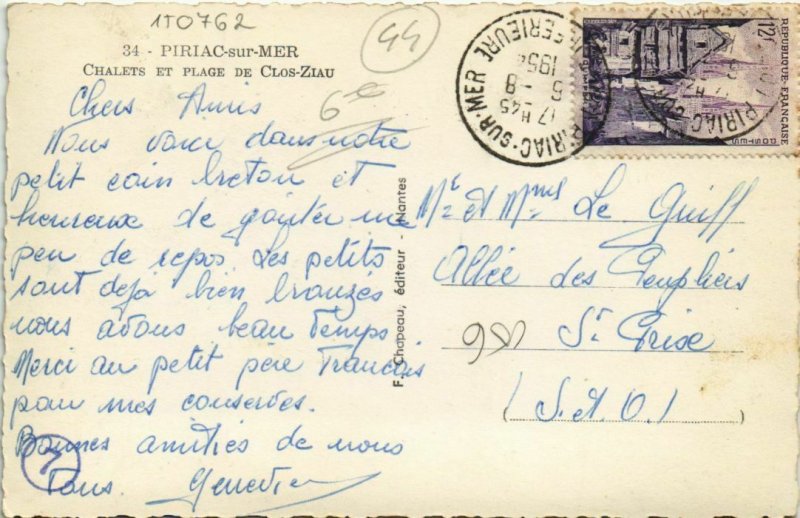 1T0762
44
34 - PIRIAC-sur-MER
CHALETS ET PLAGE DE CLOS-ZIAU
6e
Chers Amis
Nous voici dans notre
petit coin breton et
heureux de goûter un
peu de repos Les petits
sont déjà bien bronzés
nous avons beau temps
Merci au petit père Francois
pour mes conserves.
Bonnes amitiés de nous
Tous. Geneviev
F. Chapeau, éditeur - Nantes
PIRIAC-SUR-MER
17 H45
6 - 8
1954
INFERIEURE
12F
REPUBLIQUE FRANÇAISE
POSTES
Mr et Mme Le Guiff
Allée des Peupliers
St Prix
(S.et.O.)